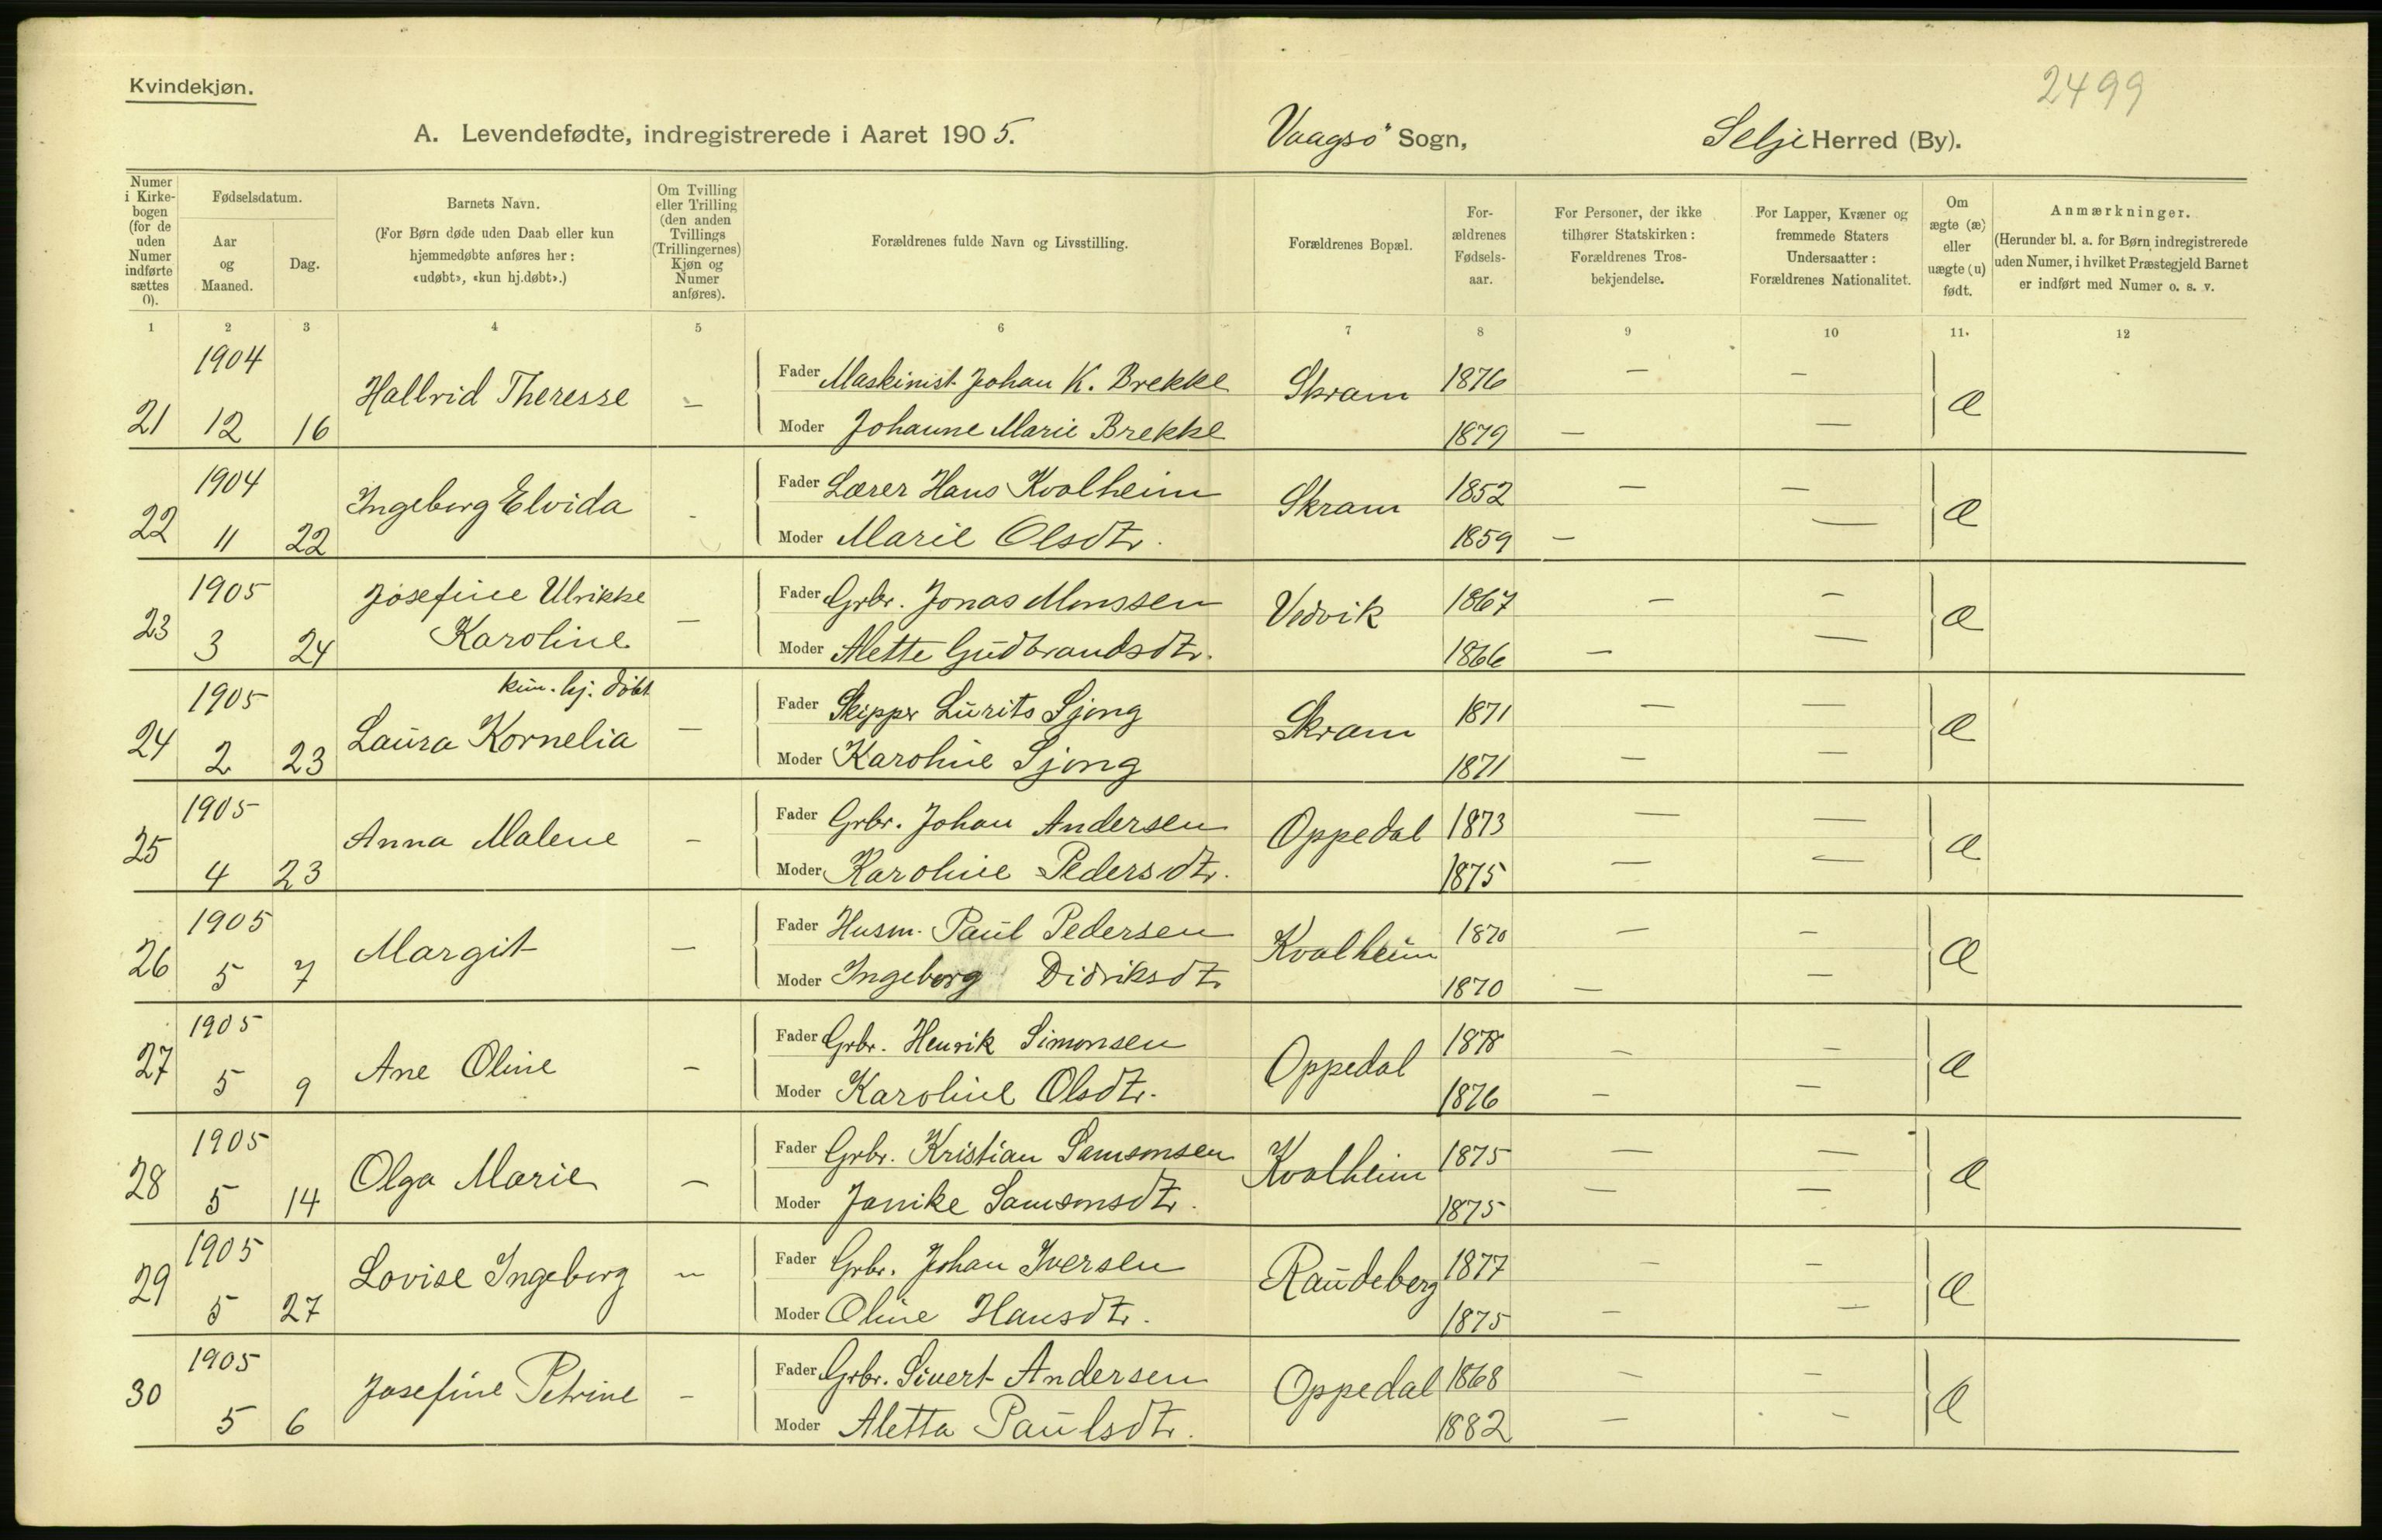 Kvindekjøn.
2499
A. Levendefødte, indregistrerede i Aaret 1905. Vaagsö Sogn, Selje Herred (By).
Numer i Kirkebogen (for de uden Numer indførte sættes 0).
Fødselsdatum.
Aar og Maaned.
Dag.
Barnets Navn.
(For Børn døde uden Daab eller kun hjemmedøbte anføres her: «udøbt», «kun hj.døbt».)
Om Tvilling eller Trilling (den anden Tvillings (Trillingernes) Kjøn og Numer anføres).
Forældrenes fulde Navn og Livsstilling.
Forældrenes Bopæl.
Forældrenes Fødselsaar.
For Personer, der ikke tilhører Statskirken: Forældrenes Trosbekjendelse.
For Lapper, Kvæner og fremmede Staters Undersaatter: Forældrenes Nationalitet.
Om ægte (æ) eller uægte (u) født.
Anmærkninger.
(Herunder bl. a. for Børn indregistrerede uden Numer, i hvilket Præstegjeld Barnet er indført med Numer o. s. v.
1 2 3 4 5 6 7 8 9 10 11. 12
21 1904 12 16 Hallvid Theresse — Fader Maskinist Johan K. Brekke Skram 1876 — — Æ
Moder Johanne Marie Brekke 1879 — —
22 1904 11 22 Ingeborg Elvida - Fader Lærer Hans Kvalheim Skram 1852 — — Æ
Moder Marie Olsdtr. 1859 — —
23 1905 3 24 Josefine Ulrikke Karoline — Fader Grbr. Jonas Monssen Vedvik 1867 — — Æ
Moder Alette Gudbrandsdtr. 1866 — —
kun. hj. döbt
24 1905 2 23 Laura Kornelia — Fader Skipper Lurits Sjong Skram 1871 — — Æ
Moder Karoline Sjong 1871 — —
25 1905 4 23 Anna Malene - Fader Grbr. Johan Andersen Oppedal 1873 — — Æ
Moder Karoline Pedersdtr. 1875 — —
26 1905 5 7 Margit — Fader Husm. Paul Pedersen Kvalheim 1870 — — Æ
Moder Ingeborg Didriksdtr 1870 — —
27 1905 5 9 Ane Oline - Fader Grbr. Henrik Simonsen Oppedal 1878 — — Æ
Moder Karoline Olsdtr. 1876 — —
28 1905 5 14 Olga Marie — Fader Grbr. Kristian Samsonsen Kvalheim 1875 — — Æ
Moder Janike Samsonsdtr. 1875 — —
29 1905 5 27 Lovise Ingeborg — Fader Grbr. Johan Iversen Raudeberg 1877 — — Æ
Moder Oline Hansdtr. 1875 — —
30 1905 5 6 Josefine Petrine - Fader Grbr. Sivert Andersen Oppedal 1868 — — Æ
Moder Aletta Paulsdtr. 1882 — -